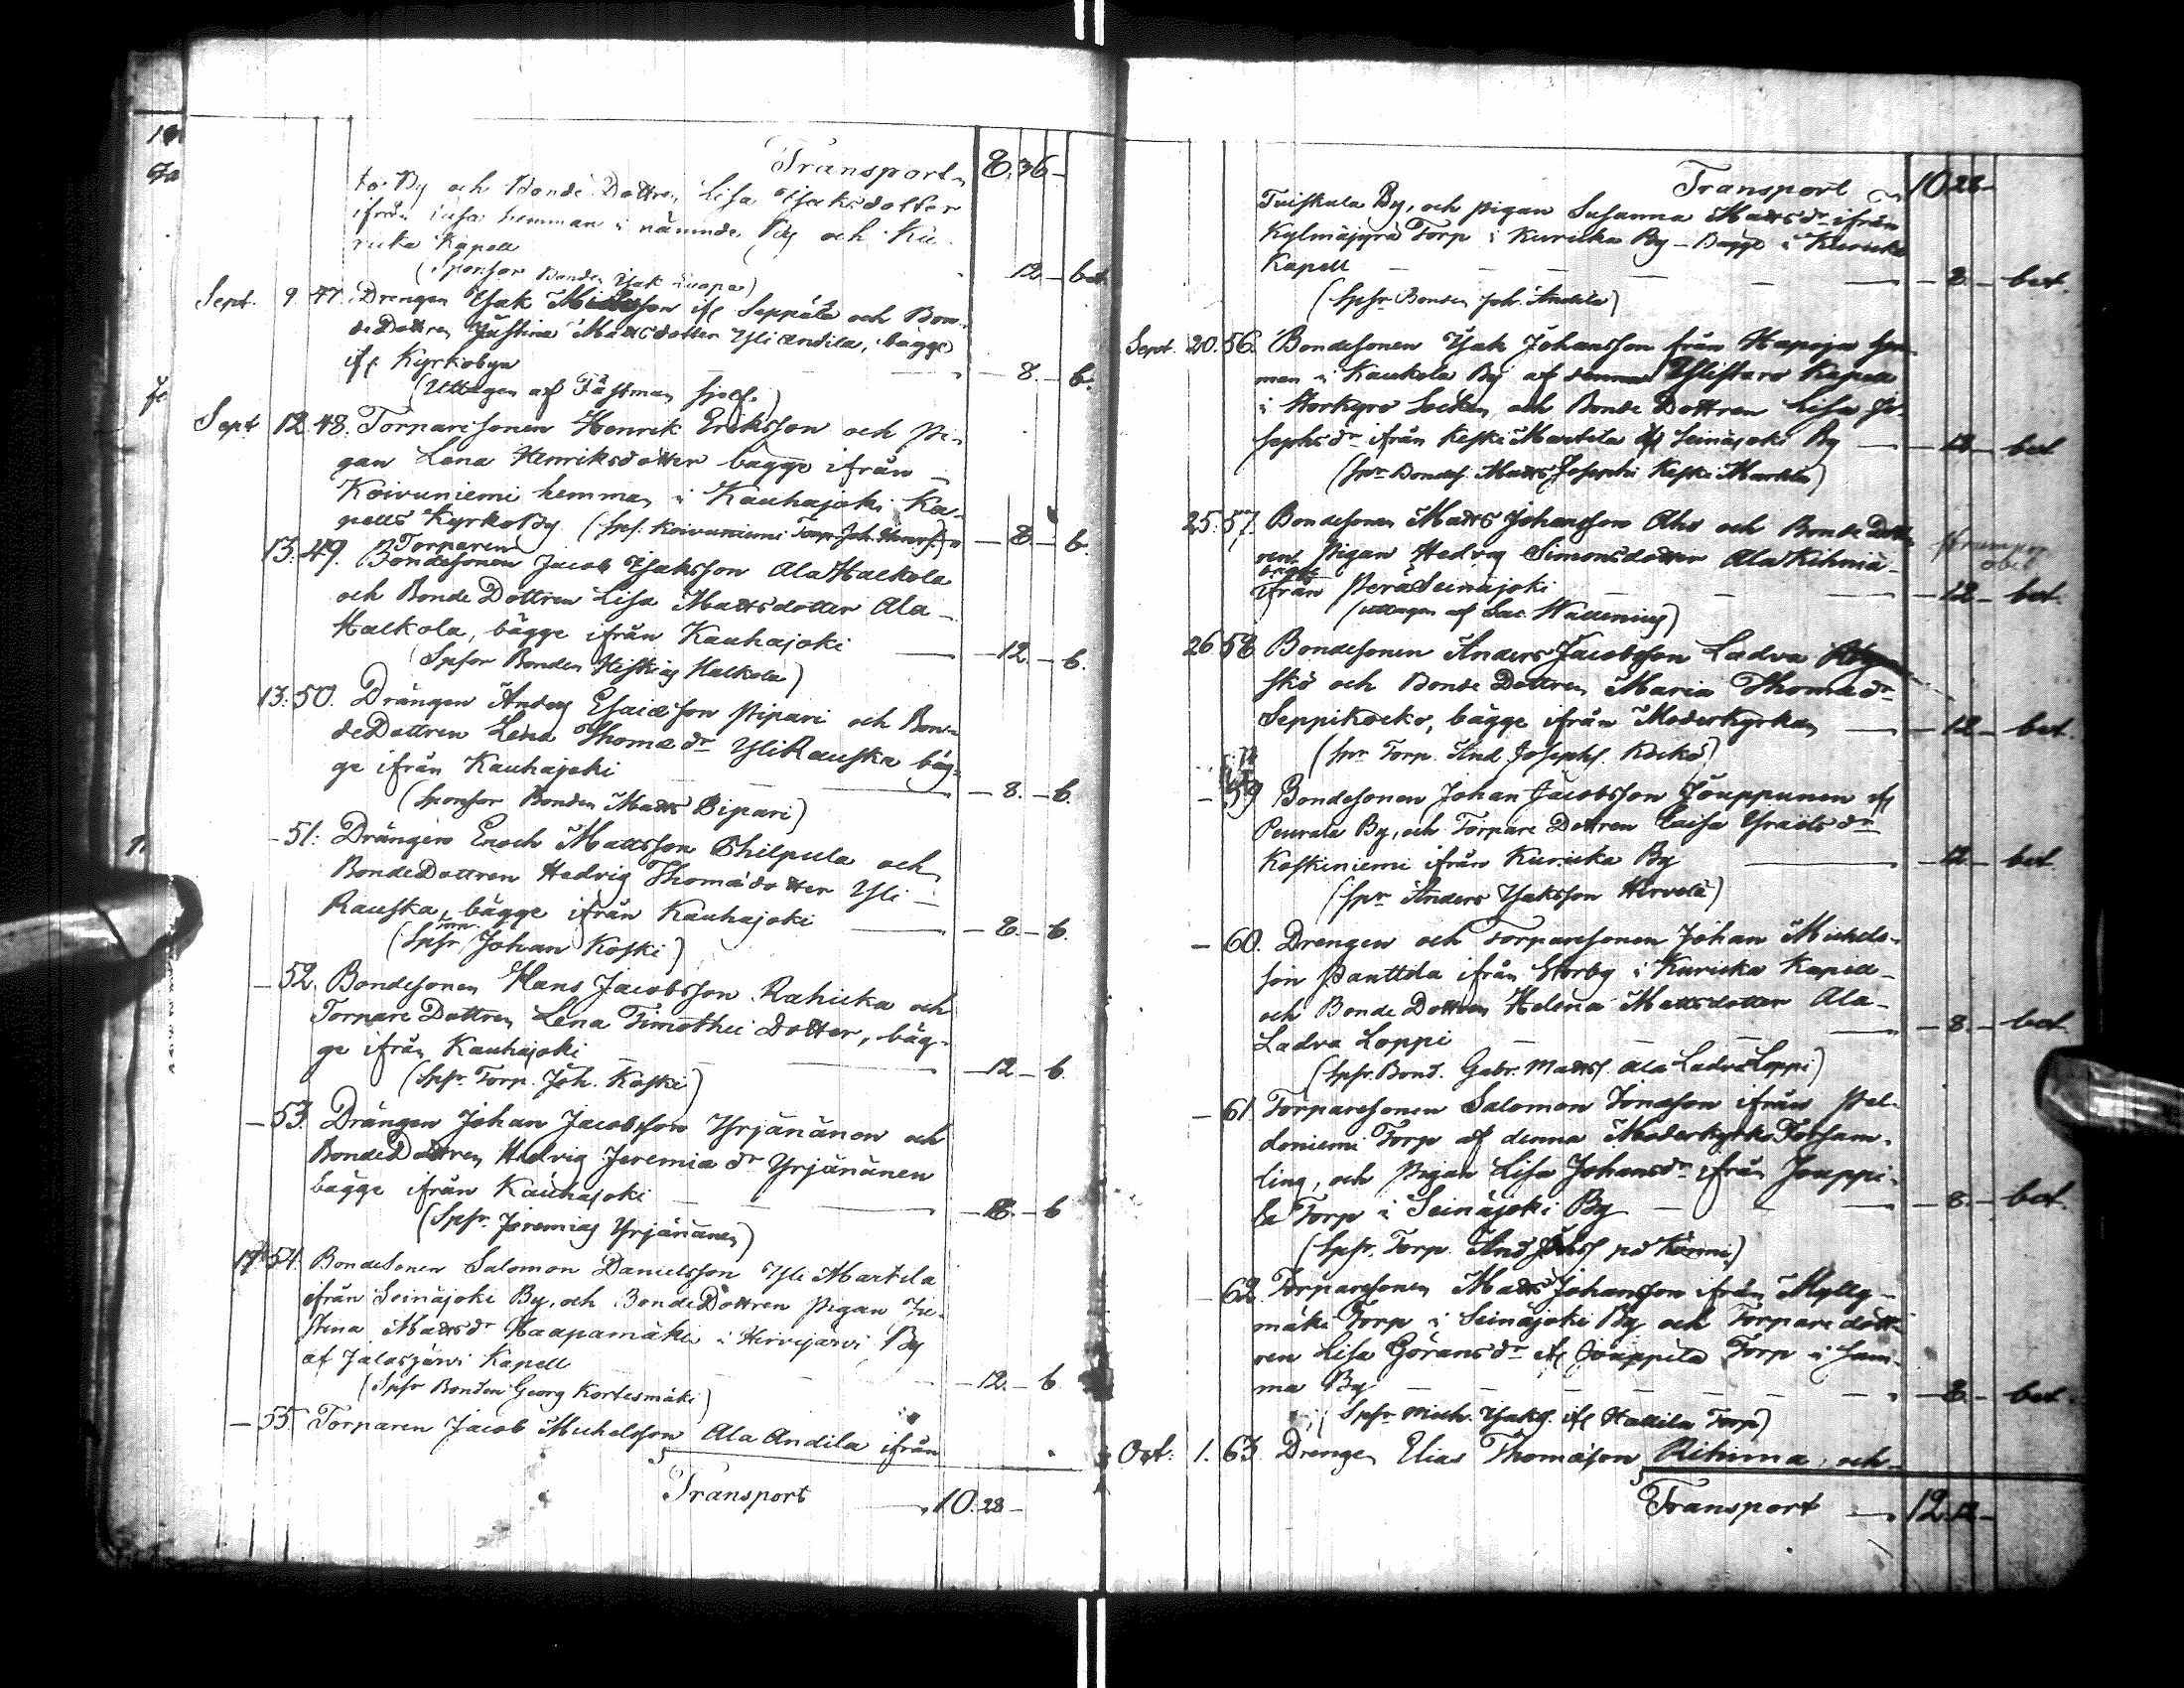 Transport 8. 36 -
to By och Bonde Dottren Lisa Isaksdotter
ifrån hemman i nämnde By och Ku-
ricka Kapell - 12. - bet.
(Sponsor Bonden Isak Luopa)
Sept. 9. 47. Drengen Isak son if. Seppälä och Bon-
de Dottren Justina Mattsdotter Yli Andila, bägge
if. Kyrkobyn - 8. - b.
(Uttagen af Fästman sjelf.)
Sept 12. 48. Torparesonen Henrik Eriksson och Pi-
gan Lena Henriksdotter bagge ifrån
Koivuniemi hemman i Kauhajoki Ka-
pells KyrkoBy. (Sps. Koivuniemi Torp. Joh. Henrs.) - 8. - b.
Torparen
13. 49. Bondesonen Jacob Isaksson Ala Halkola
och Bonde Dottren Lisa Mattsdotter Ala-
Halkola, bägge ifrån Kauhajoki - 12. - b.
(Spsor Bonden Hiskias Halkola)
13. 50. Drängen Anders Esaiasson Pipari och Bon-
deDottren Lena Thomædr YliRauska bäg-
ge ifrån Kauhajoki - 8. - b.
(Sponsor Bonden Matts Pipari)
- 51. Drängen Enoch Mattsson Philpula och
BondeDottren Hedvig Thomædotter Yli-
Rauska, bägge ifrån Kauhajoki - 8. - b.
(Spsr Johan Koski)
- 52. Bondesonen Hans Jacobsson Rahicka och
Torpare Dottren Lena Timothei Dotter, bäg-
ge ifrån Kauhajoki - 12. - b.
(Spsr. Torp. Joh. Koski)
- 53. Drängen Johan Jacobsson Yrjänänen och
BondeDottren Hedvig Jeremiæ dr Yrjänänen
bägge ifrån Kauhajoki - - b
(Spsr. Jeremias Yrjänänen)
54. Bondesonen Salomon Danielsson Yli Martila
ifrån Seinäjoki By, och BondeDottren Pigan Ju-
stina Mattsdr Haapamäki i Hirvijärvi By
af Jalasjärvi Kapell - 12. - b
(Spsr Bonden Georg Kortesmäki)
- 55. Torparen Jacob Michelsson Ala Andila ifrån
Transport 10. 28 -
Transport 10. 28 -
Tuiskula By, och pigan Susanna Mattsdr ifrån
Kylmäjyrä Torp i Kuricka By - Bägge i Kuricka
Kapell - 8. - bet.
(Spsr Bonden Joh. Andila)
Sept. 20. 56. Bondesonen Isak Johansson från Hapoja hem-
man i Kaukola By af denna Ylistaro Kapell
i Storkyro Socken och Bonde Dottren Lisa Jo-
sephsdr ifrån Keski Martila if Seinäjoki By - 12 - bet
(Spr Bondes. Matts Josephi Keski Martila)
25. 57. Bondesonen Matts Johansson Aho och Bonde Dott-
ren Pigan Hedvig Simonsdotter Ala Rihniä-
bägge
ifrån PeräSeinäjoki - 12 - bet.
(uttagen af Sac. Wallenius)
26 58 Bondesonen Anders Jacobsson Ladva
skö och Bonde Dottren Maria Thomædr
Seppikoski, bägge ifrån Moderkyrkan - 12 - bet.
(Spr Torp. And Josephs. )
- 59 Bondesonen Johan Jacobsson Jouppunen if
Peurala By, och Torpare Dottren Caisa Israelsdr
Koskiniemi ifrån Kuricka By - 12. - bet.
(Spr Anders Isaksson Hirvelä)
- 60. Drengen och Torparesonen Johan Michels-
son Panttila ifrån Storby i Kuricka Kapell
och Bonde Dottren Helena Mattsdotter Ala-
Ladva Loppi - 8. - bet
(Spsr. Bond. Gabr. Matts. Ala LadvaLoppi)
- 61. Torparesonen Salomon Jonasson ifrån Pel-
doniemi Torp af denna Moderkyrko Försam-
ling, och Pigan Lisa Johansdr ifrån Jouppi-
la Torp i Seinäjoki By - 8. - bet.
(Spsr. Torp. And Johss på )
- 62. Torparesonen Matts Johansson ifrån Mylly-
mäki Torp i Seinäjoki By och Torpare dött-
ren Lisa Göransdr if. Jouppila Torp i sam-
ma By - 8. - bet.
(Spsr Mich. Isaks. if. Hallila Torp)
Oct. 1. 63. Drengen Elias Thomasson Rihima och
Transport 12. 12 -